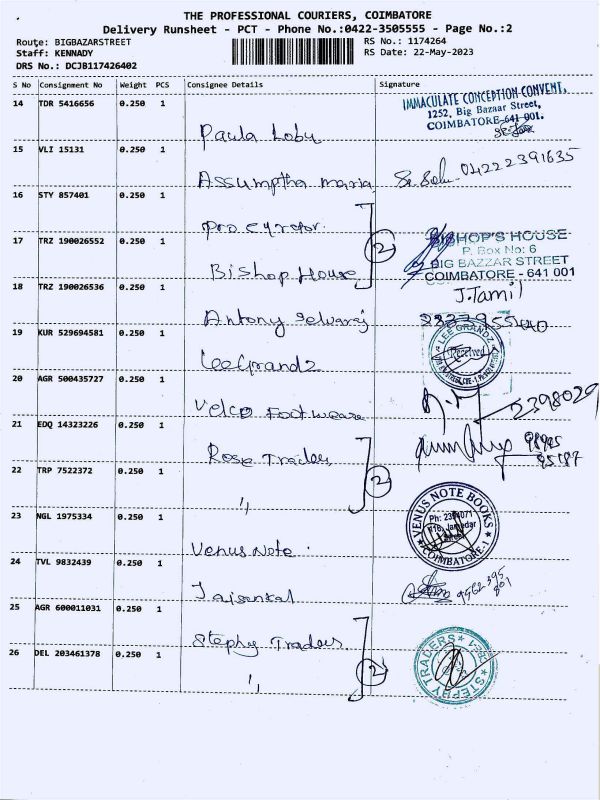 THE PROFESSIONAL COURIERS, COIMBATORE
Delivery Runsheet - PCT - Phone No.:0422-3505555 - Page No.:2
Route: BIGBAZARSTREET RS No.: 1174264
Staff: KENNADY RS Date: 22-May-2023
DRS No.: DCJB117426402
S No Consignment No Weight PCS Consignee Details Signature
14 TDR 5416656 0.250 1 Paula Lobu IMMACULATE CONCEPTION CONVENT,
1252, Big Bazaar Street,
COIMBATORE-641 001.
15 VLI 15131 0.250 1 Assumptha maria 04222391635
16 STY 857401 0.250 1 procyrator.
17 TRZ 190026552 0.250 1 Bishop House 2 BISHOP'S HOUSE
P. Box No: 6
BIG BAZZAR STREET
COIMBATORE - 641 001
18 TRZ 190026536 0.250 1 Antony selvaraj J.Tamil
19 KUR 529694581 0.250 1 LeeGrandz LEE GRANDZ
Received
20 AGR 500435727 0.250 1 Velco Footweare 2398029
21 EDQ 14323226 0.250 1 Rose Traders
22 TRP 7522372 0.250 1 〃 2
23 NGL 1975334 0.250 1 Venus Note. VENUS NOTE BOOKS
COIMBATORE-1
24 TVL 9832439 0.250 1 Jaisankal
25 AGR 600011031 0.250 1 Stephy Traders
26 DEL 203461378 0.250 1 〃 2 STEPHY TRADERS